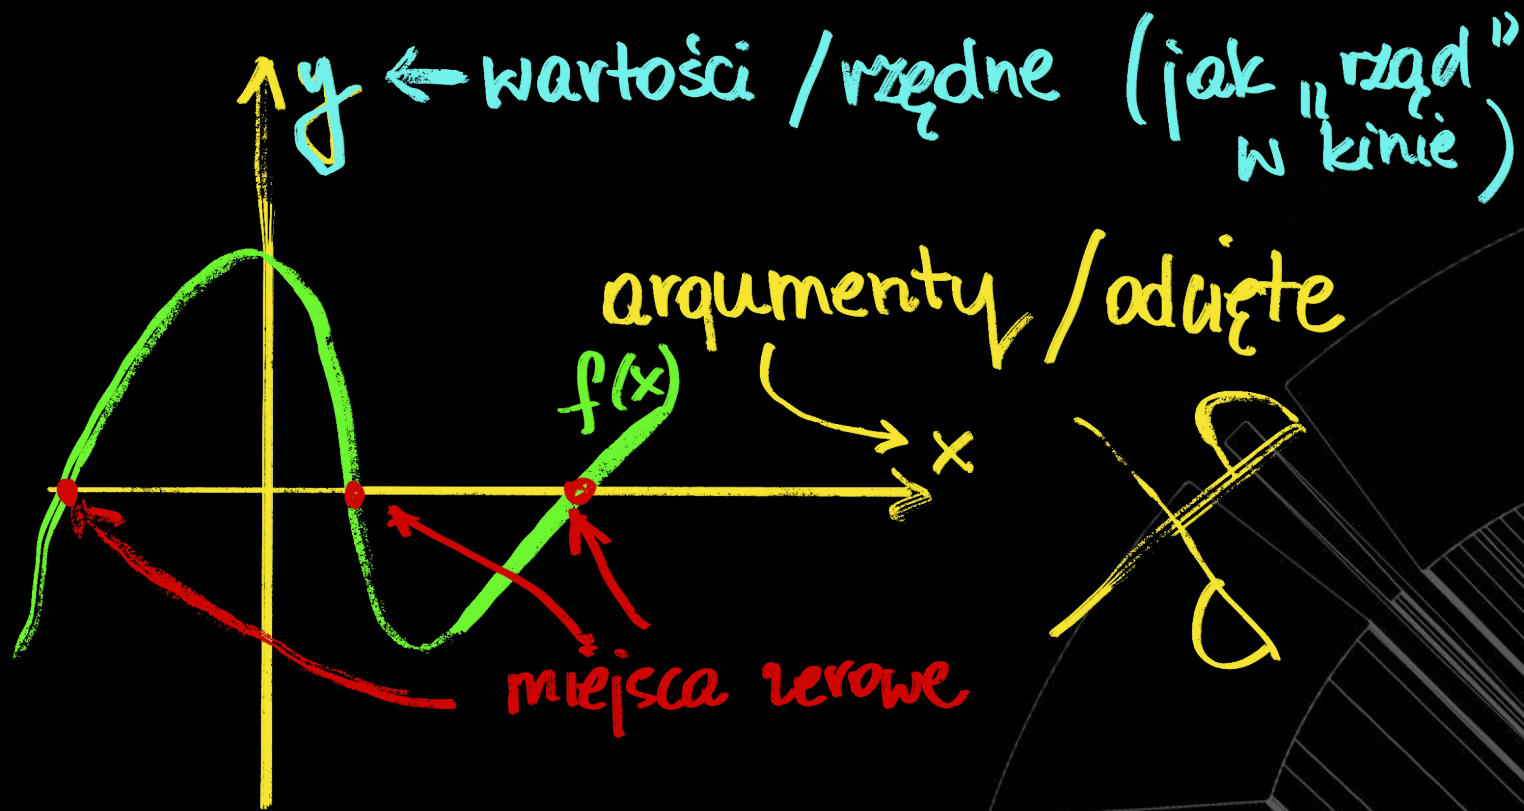 y ← wartości / rzędne (jak „rząd”
w kinie)
argumenty / odcięte
f(x)
x
miejsca zerowe